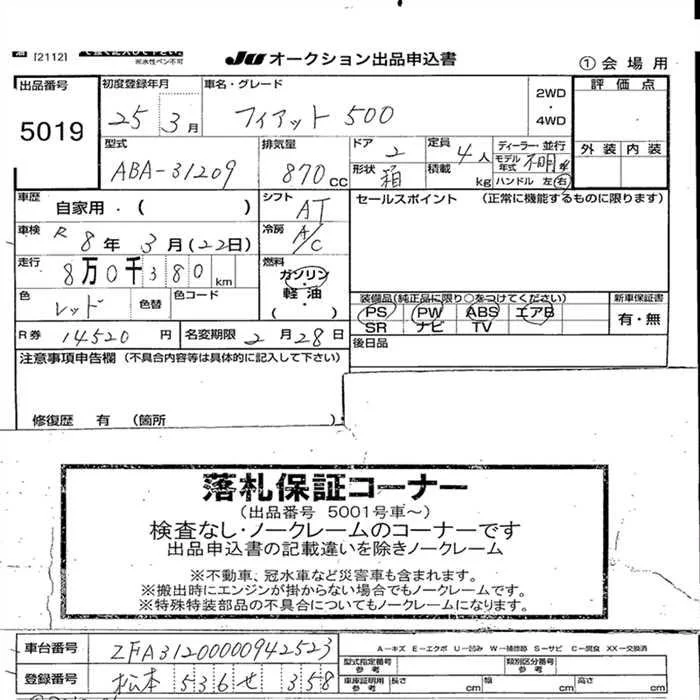 [2112]
※水性ペン不可
JU オークション出品申込書
① 会場用
出品番号
5019
初度登録年月
25 3月
車名・グレード
フィアット 500
2WD
4WD
評価点
外装 内装
型式
ABA-31209
排気量
870 CC
ドア 2
形状 箱
定員 4人
積載 kg
ディーラー・並行
モデル年式 不明 年
ハンドル 左 右
車歴
自家用・( )
シフト AT
セールスポイント (正常に機能するものに限ります)
車検 R 8年 3月(22日)
冷房 A/C
走行
8万0千380 km
燃料
ガソリン・
軽油・
( )
色 レッド
色替
色コード
装備品(純正品に限り○をつけてください)
PS PW ABS エアB
SR ナビ TV
新車保証書
有・無
R券 14520円
名変期限 2月28日
後日品
注意事項申告欄 (不具合内容等は具体的に記入して下さい)
修復歴 有 (箇所 )
落札保証コーナー
(出品番号 5001号車~)
検査なし・ノークレームのコーナーです
出品申込書の記載違いを除きノークレーム
※不動車、冠水車など災害車も含まれます。
※搬出時にエンジンが掛からない場合でもノークレームです。
※特殊特装部品の不具合についてもノークレームになります。
車台番号 ZFA31200000942523
A-キズ E-エクボ U-凹み W-補修跡 S-サビ C-腐食 XX-交換済
型式指定番号 参考
類別区分番号 参考
登録番号 松本 536 せ 358
車庫証明用 参考 長さ cm 幅 cm 高さ cm